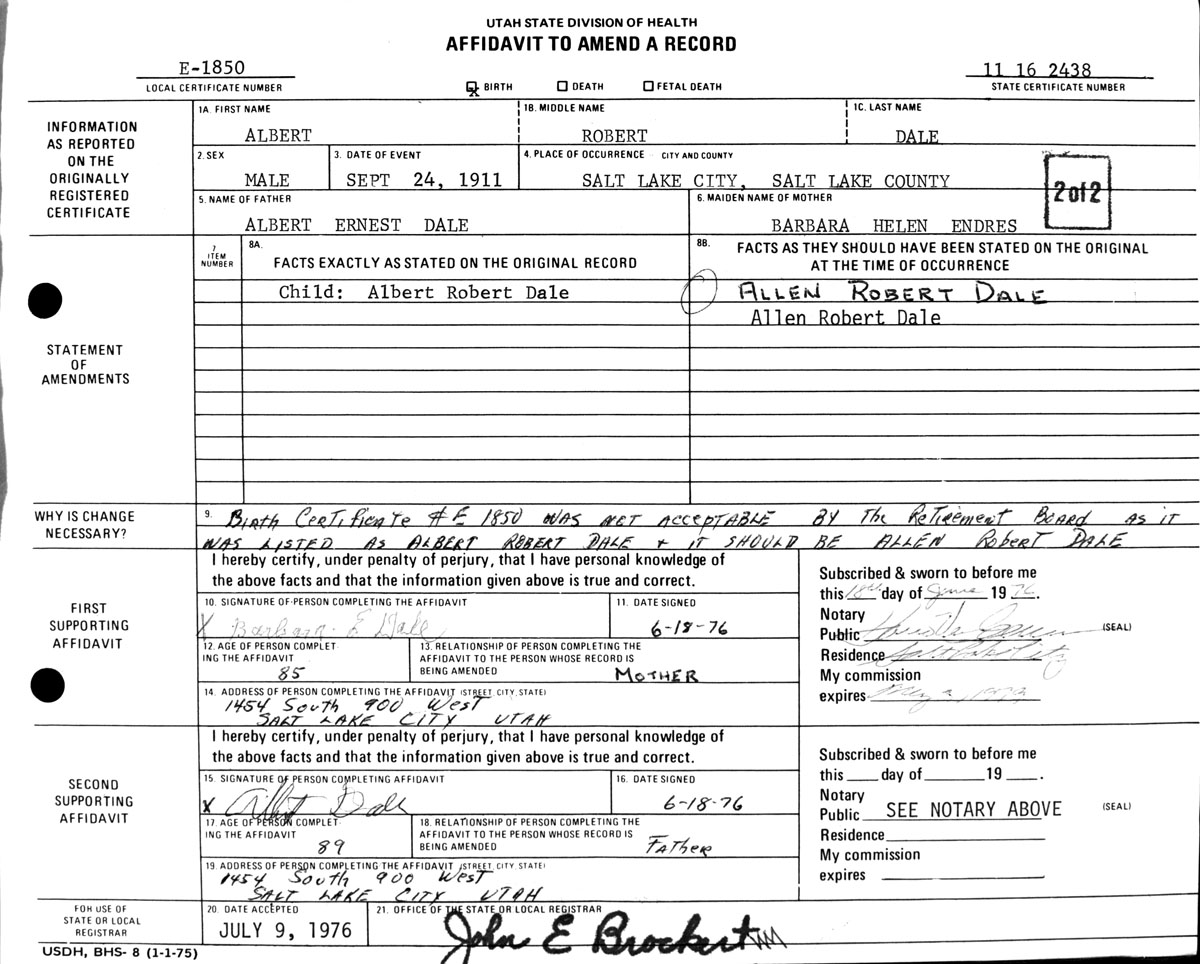 UTAH STATE DIVISION OF HEALTH
AFFIDAVIT TO AMEND A RECORD
E-1850
LOCAL CERTIFICATE NUMBER
BIRTH DEATH FETAL DEATH
11 16 2438
STATE CERTIFICATE NUMBER
INFORMATION
AS REPORTED
ON THE
ORIGINALLY
REGISTERED
CERTIFICATE
1A. FIRST NAME
ALBERT
1B. MIDDLE NAME
ROBERT
1C. LAST NAME
DALE
2. SEX
MALE
3. DATE OF EVENT
SEPT 24, 1911
4. PLACE OF OCCURRENCE CITY AND COUNTY
SALT LAKE CITY, SALT LAKE COUNTY
2 of 2
5. NAME OF FATHER
ALBERT ERNEST DALE
6. MAIDEN NAME OF MOTHER
BARBARA HELEN ENDRES
STATEMENT
OF
AMENDMENTS
7
ITEM
NUMBER
8A.
FACTS EXACTLY AS STATED ON THE ORIGINAL RECORD
8B.
FACTS AS THEY SHOULD HAVE BEEN STATED ON THE ORIGINAL
AT THE TIME OF OCCURRENCE
Child: Albert Robert Dale
ALLEN ROBERT DALE
Allen Robert Dale
WHY IS CHANGE
NECESSARY?
9. Birth Certificate #E 1850 was not acceptable by the Retirement Board as it
was listed as Albert Robert Dale + it should be Allen Robert Dale
FIRST
SUPPORTING
AFFIDAVIT
I hereby certify, under penalty of perjury, that I have personal knowledge of
the above facts and that the information given above is true and correct.
10. SIGNATURE OF PERSON COMPLETING THE AFFIDAVIT
X Barbara E Dale
11. DATE SIGNED
6-18-76
12. AGE OF PERSON COMPLET
ING THE AFFIDAVIT
85
13. RELATIONSHIP OF PERSON COMPLETING THE
AFFIDAVIT TO THE PERSON WHOSE RECORD IS
BEING AMENDED
MOTHER
14. ADDRESS OF PERSON COMPLETING THE AFFIDAVIT (STREET, CITY, STATE)
1454 South 900 West
Salt Lake City Utah
Subscribed & sworn to before me
this 18th day of June 19 76.
Notary
Public
(SEAL)
Residence Salt Lake City
My commission
expires
SECOND
SUPPORTING
AFFIDAVIT
I hereby certify, under penalty of perjury, that I have personal knowledge of
the above facts and that the information given above is true and correct.
15. SIGNATURE OF PERSON COMPLETING AFFIDAVIT
X Albert Dale
16. DATE SIGNED
6-18-76
17. AGE OF PERSON COMPLET
ING THE AFFIDAVIT
89
18. RELATIONSHIP OF PERSON COMPLETING THE
AFFIDAVIT TO THE PERSON WHOSE RECORD IS
BEING AMENDED
Father
19. ADDRESS OF PERSON COMPLETING THE AFFIDAVIT (STREET, CITY, STATE)
1454 South 900 West
Salt Lake City Utah
Subscribed & sworn to before me
this day of 19 .
Notary
Public SEE NOTARY ABOVE
(SEAL)
Residence
My commission
expires
FOR USE OF
STATE OR LOCAL
REGISTRAR
20. DATE ACCEPTED
JULY 9, 1976
21. OFFICE OF THE STATE OR LOCAL REGISTRAR
John E Brockert
USDH, BHS- 8 (1-1-75)